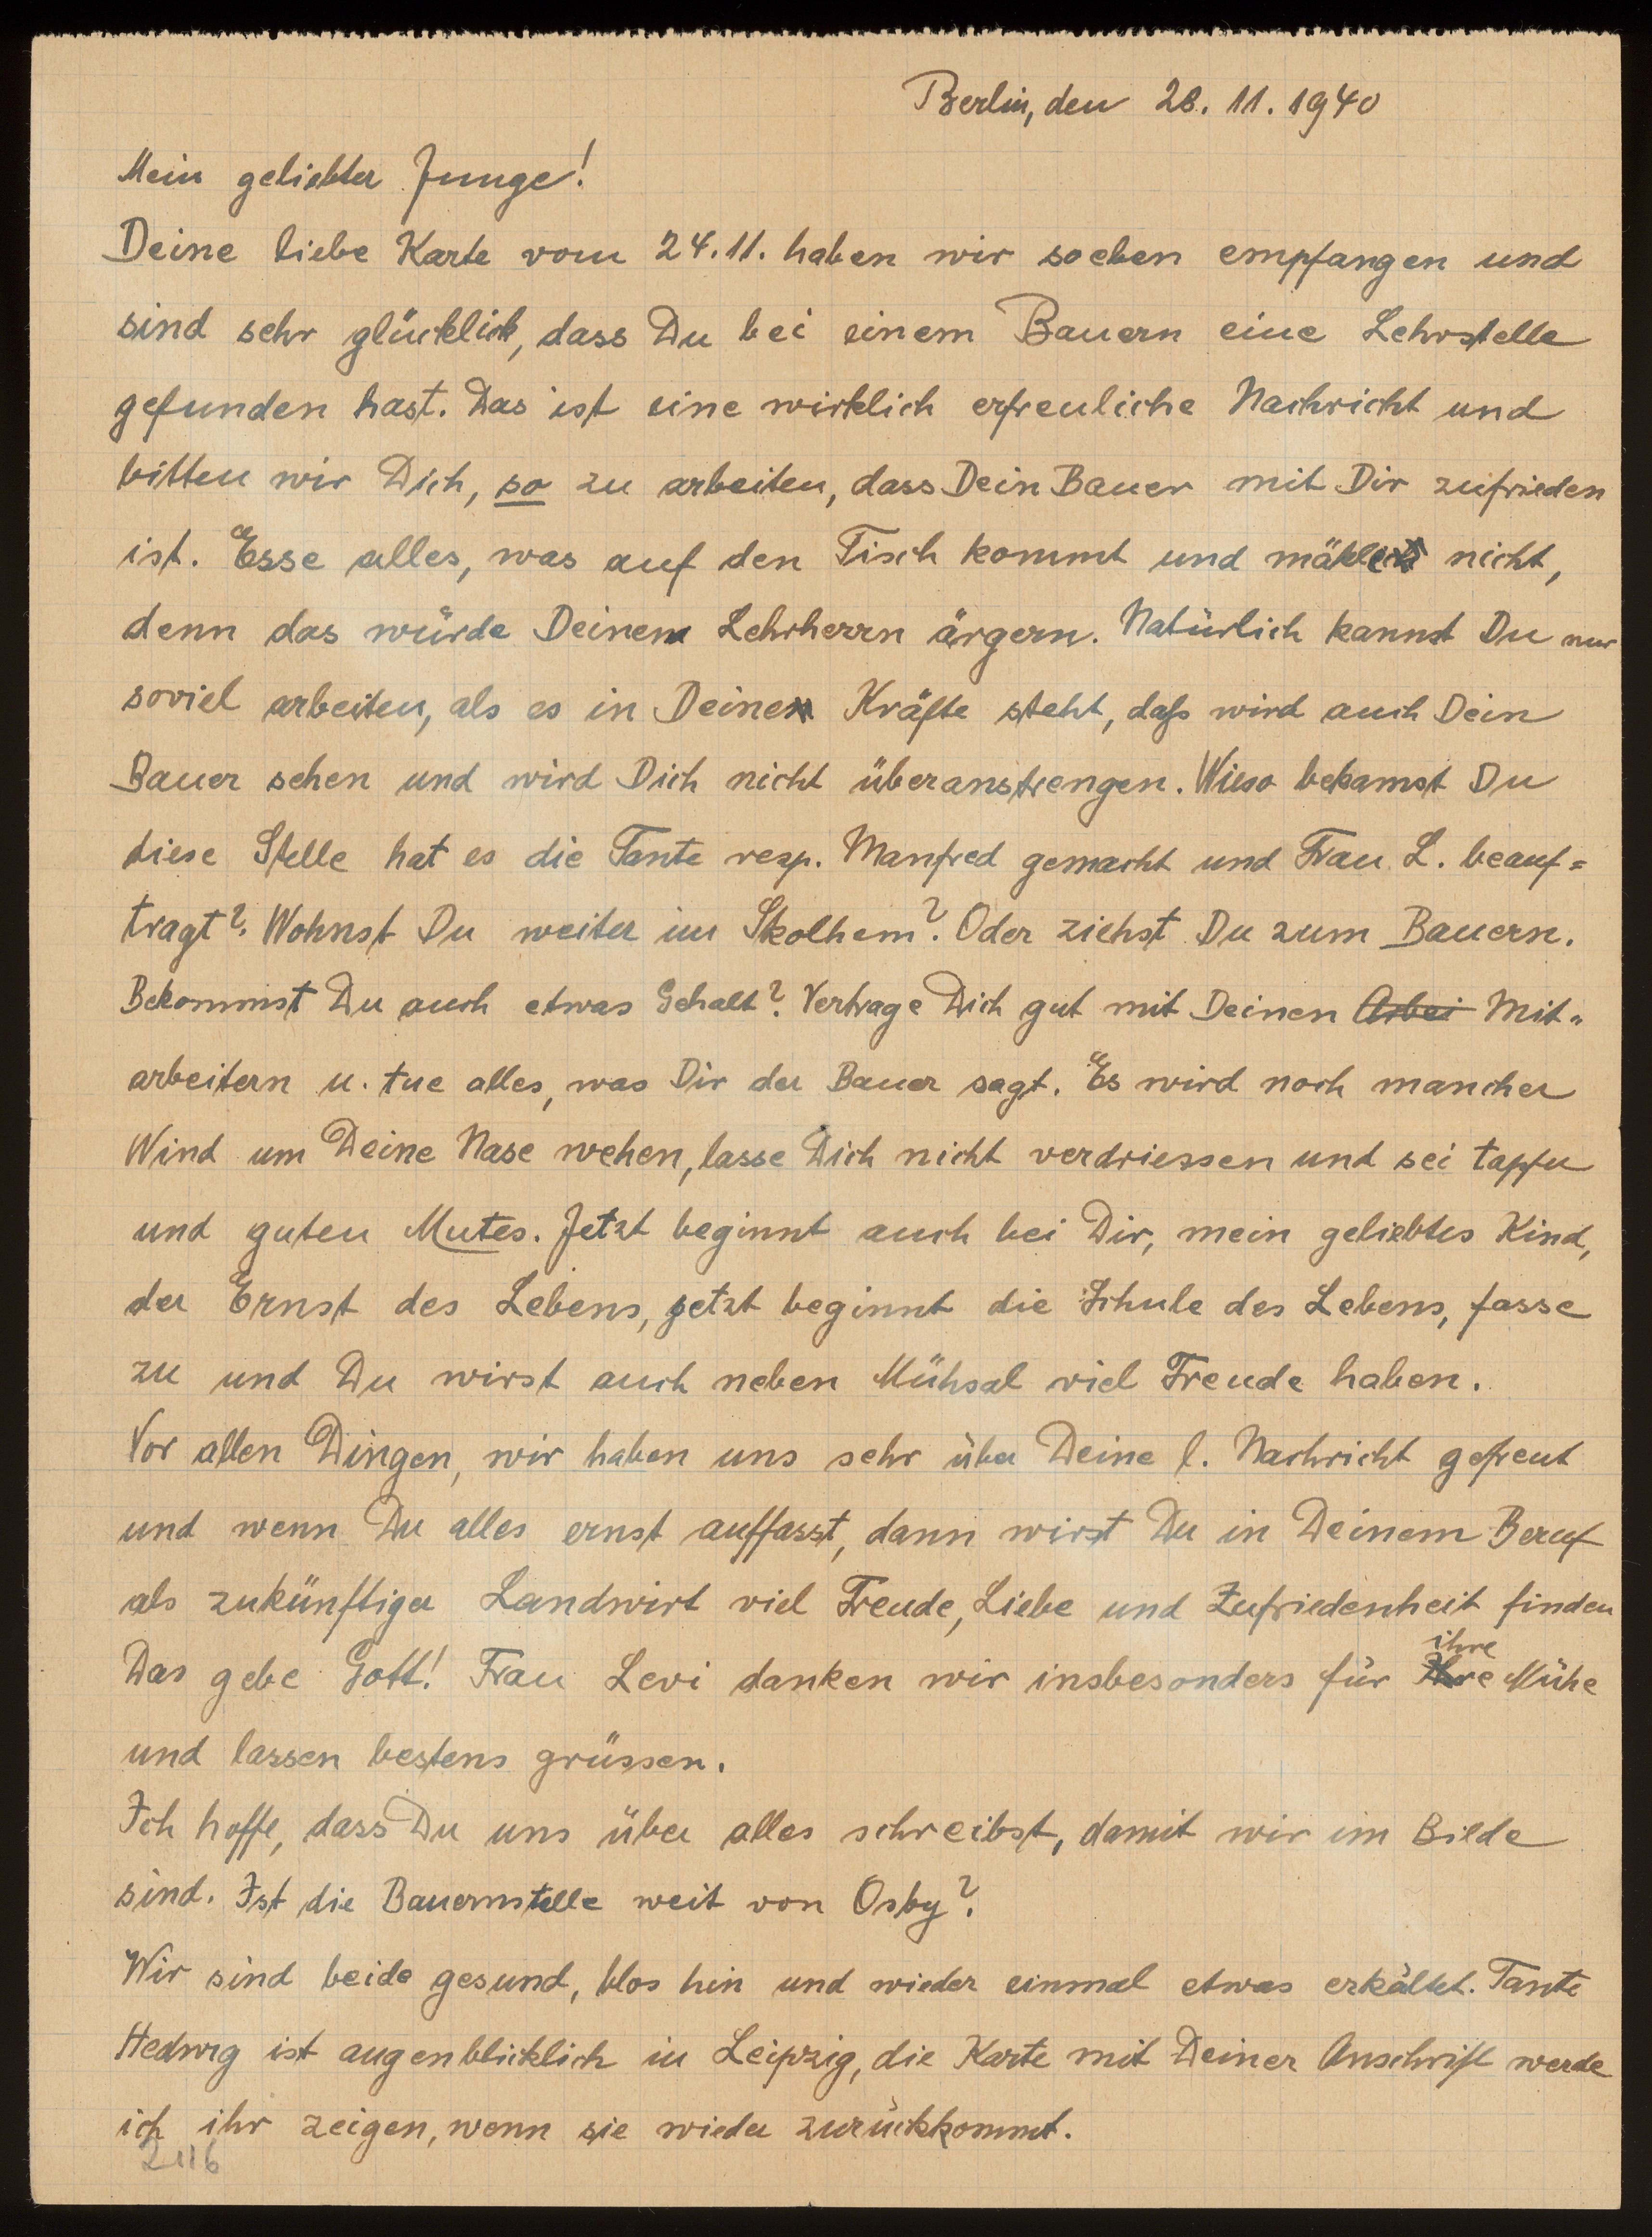 Berlin, den 28. 11. 1940
Mein geliebter Junge!
Deine liebe Karte vom 24.11. haben wir soeben empfangen und
sind sehr glücklich, dass Du bei einem Bauern eine Lehrstelle
gefunden hast. Das ist eine wirklich erfreuliche Nachricht und
bitten wir Dich, so zu arbeiten, dass Dein Bauer mit Dir zufrieden
ist. Esse alles, was auf den Tisch kommt und mäkle nicht,
denn das würde Deinen Lehrherrn ärgern. Natürlich kannst Du nur
soviel arbeiten, als es in Deine Kräfte steht, daß wird auch Dein
Bauer sehen und wird Dich nicht überanstrengen. Wieso bekamst Du
diese Stelle hat es die Tante resp. Manfred gemacht und Frau L. beauf=
tragt? Wohnst Du weiter im Skolhem? Oder ziehst Du zum Bauern.
Bekommst Du auch etwas Gehalt? Vertrage Dich gut mit Deinen Arbei Mit=
arbeitern u. tue alles, was Dir der Bauer sagt. Es wird noch mancher
Wind um Deine Nase wehen, lasse Dich nicht verdriessen und sei tapfer
und guten Mutes. Jetzt beginnt auch bei Dir, mein geliebtes Kind,
der Ernst des Lebens, jetzt beginnt die Schule des Lebens, fasse
zu und Du wirst auch neben Mühsal viel Freude haben.
Vor allen Dingen, wir haben uns sehr über Deine l. Nachricht gefreut
und wenn Du alles ernst auffasst, dann wirst Du in Deinem Beruf
als zukünftiger Landwirt viel Freude, Liebe und Zufriedenheit finden
Das gebe Gott! Frau Levi danken wir insbesonders für ihre Mühe
und lassen bestens grüssen.
Ich hoffe, dass Du uns über alles schreibst, damit wir im Bilde
sind. Ist die Bauernstelle weit von Osby?
Wir sind beide gesund, blos hin und wieder einmal etwas erkältet. Tante
Hedwig ist augenblicklich in Leipzig, die Karte mit Deiner Anschrift werde
ich ihr zeigen, wenn sie wieder zurückkommt.
2116